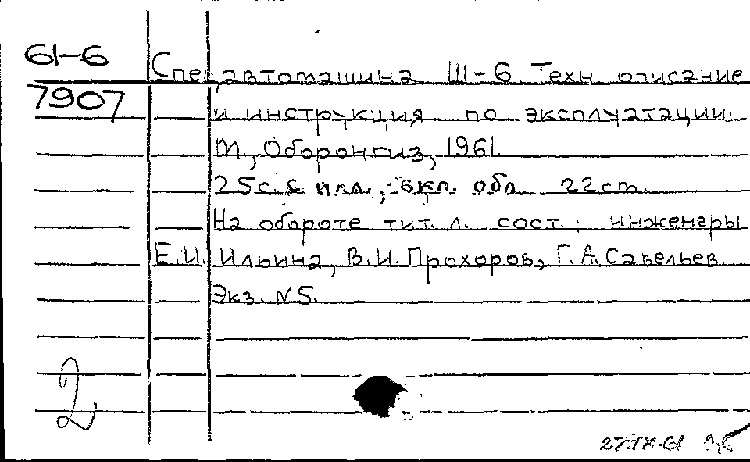 61-6
7907
Спецавтомашина Ш-6. Техн. описание
и инструкция по эксплуатации.
М., Оборонгиз, 1961.
25с. с илл., вкл. обл. 22см.
На обороте тит. л. сост.: инженеры
Е.И. Ильина, В.И. Прохоров, Г.А. Савельев.
Экз. N5.
2
27-IX-61